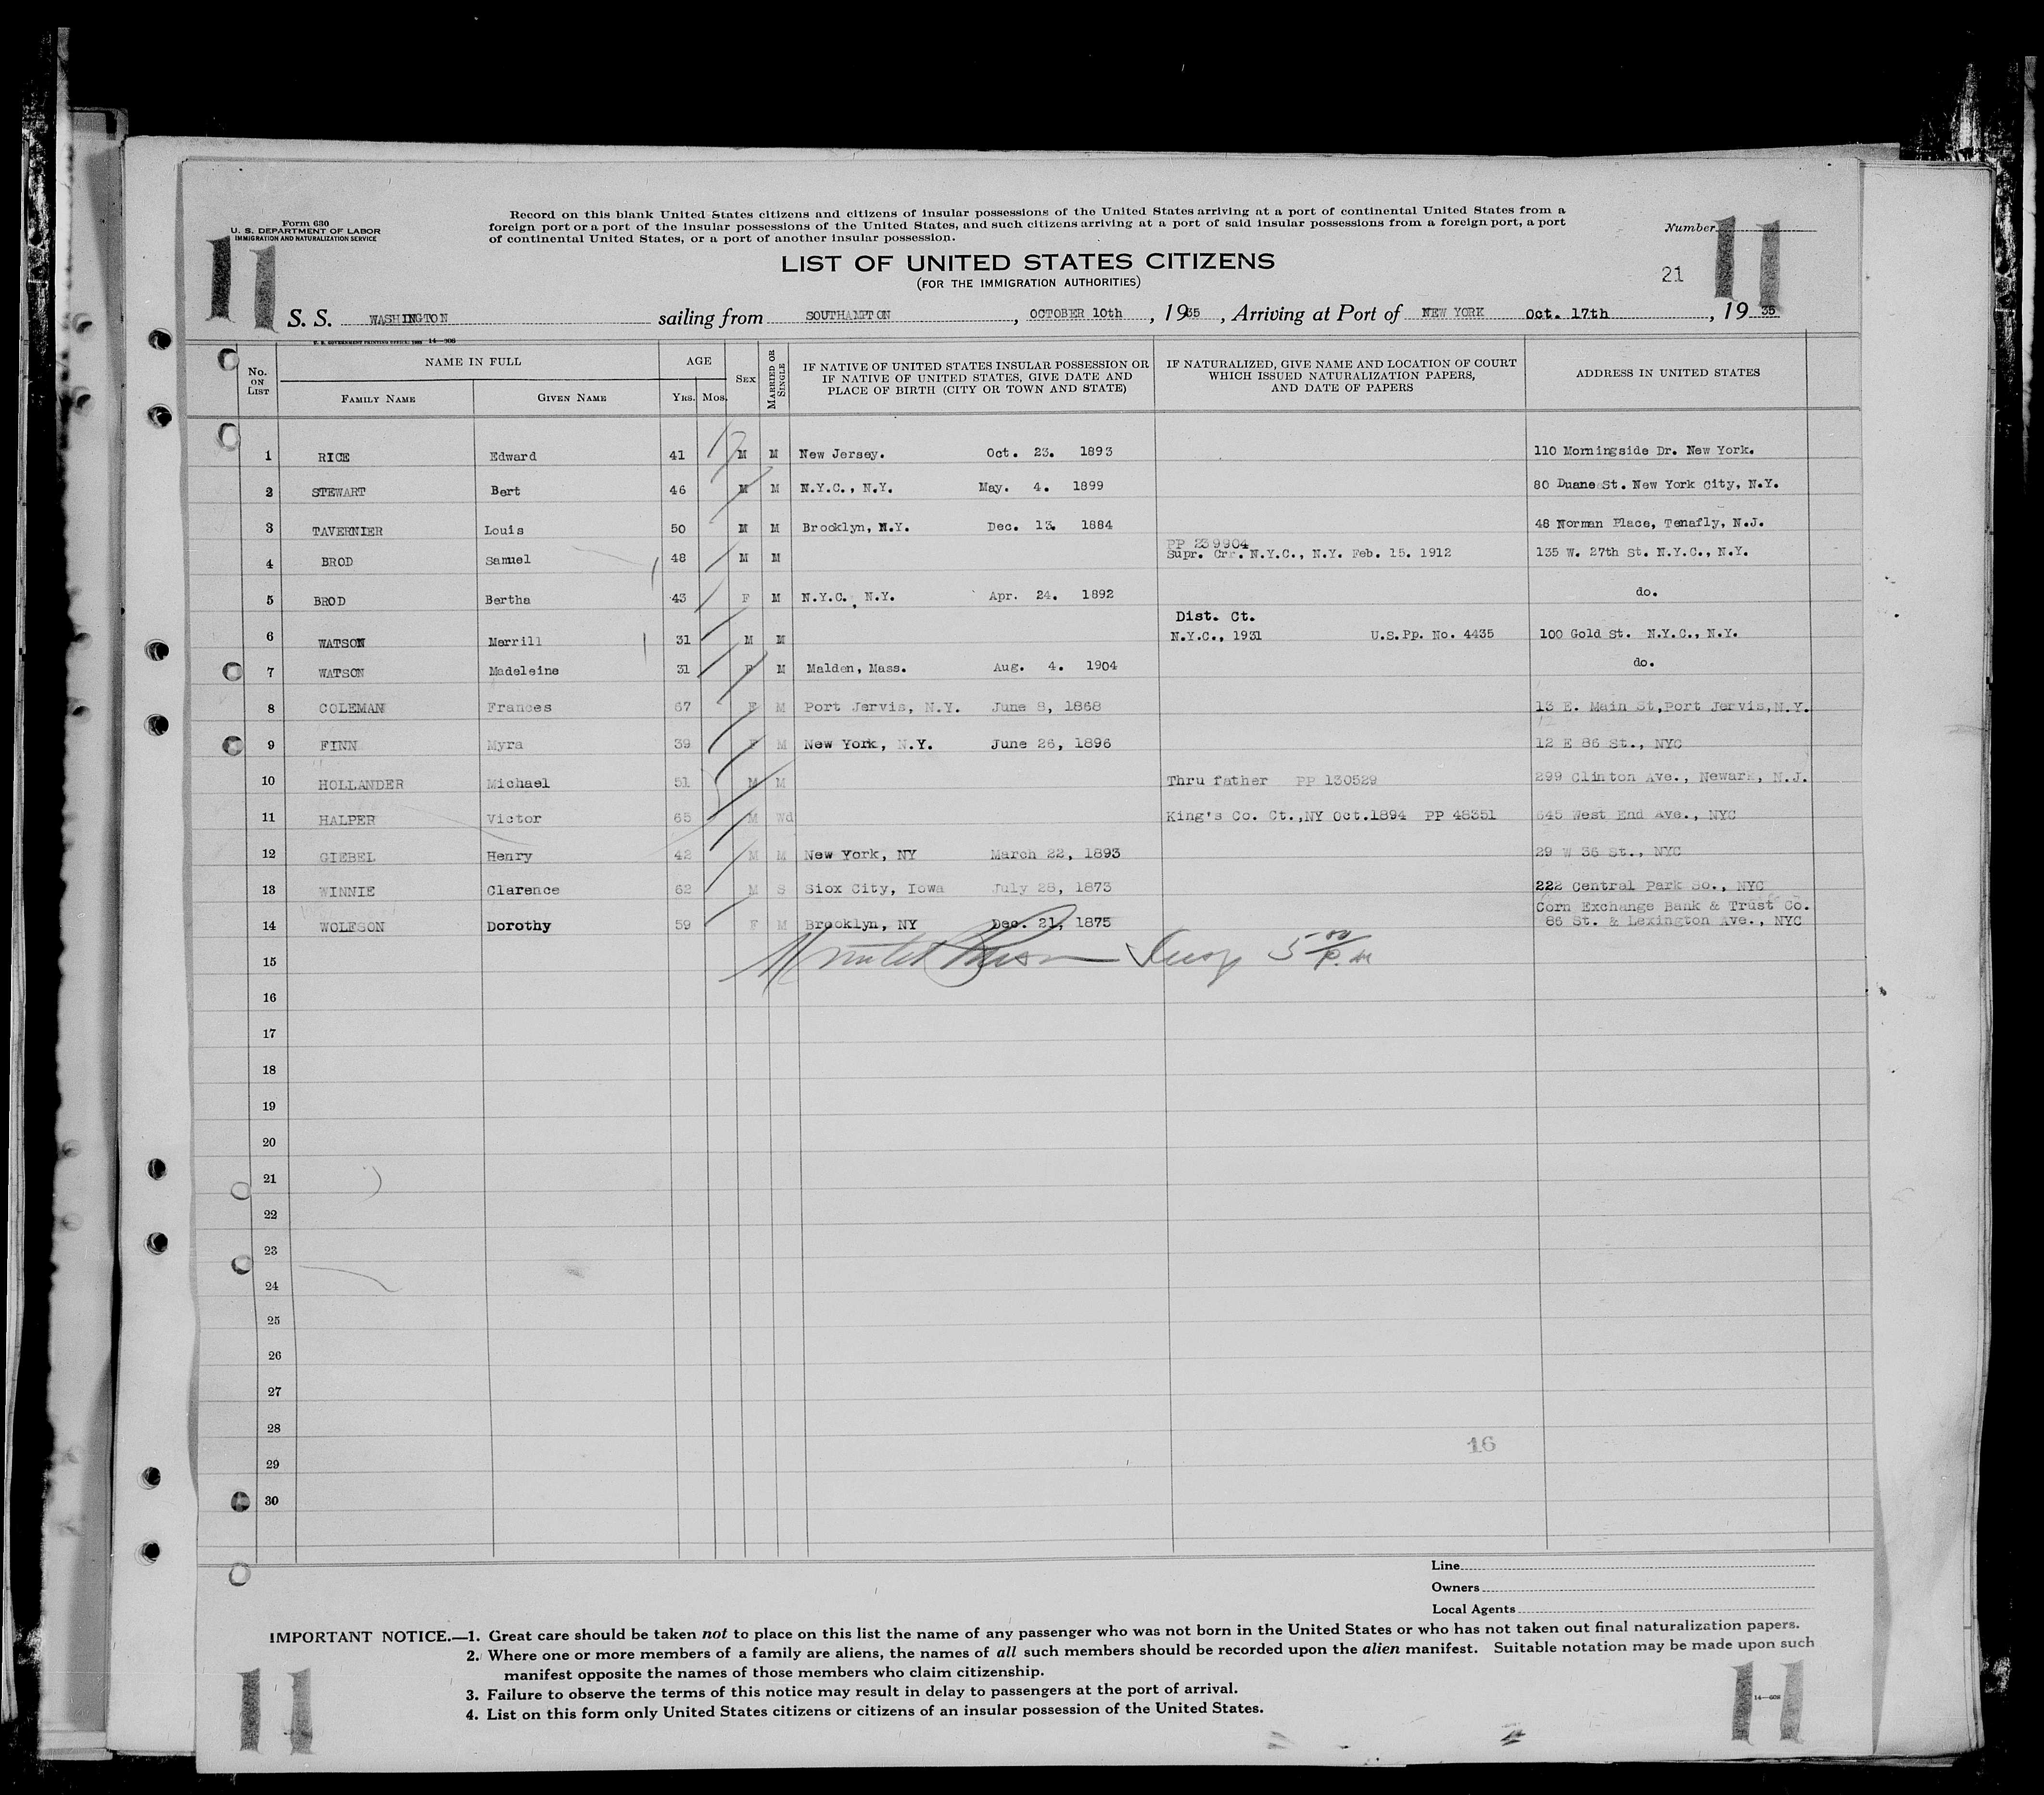 Form 630
U. S. DEPARTMENT OF LABOR
IMMIGRATION AND NATURALIZATION SERVICE
Record on this blank United States citizens and citizens of insular possessions of the United States arriving at a port of continental United States from a
foreign port or a port of the insular possessions of the United States, and such citizens arriving at a port of said insular possessions from a foreign port, a port
of continental United States, or a port of another insular possession.
Number
11 11
LIST OF UNITED STATES CITIZENS
(FOR THE IMMIGRATION AUTHORITIES)
21
S. S. WASHINGTON sailing from SOUTHAMPTON, OCTOBER 10th, 1935, Arriving at Port of NEW YORK Oct. 17th, 19 35
U. S. GOVERNMENT PRINTING OFFICE: 14—608
No. ON LIST NAME IN FULL AGE SEX MARRIED OR SINGLE IF NATIVE OF UNITED STATES INSULAR POSSESSION OR IF NATIVE OF UNITED STATES, GIVE DATE AND PLACE OF BIRTH (CITY OR TOWN AND STATE) IF NATURALIZED, GIVE NAME AND LOCATION OF COURT WHICH ISSUED NATURALIZATION PAPERS, AND DATE OF PAPERS ADDRESS IN UNITED STATES
FAMILY NAME GIVEN NAME YRS. MOS.
1 RICE Edward 41 M M New Jersey. Oct. 23. 1893 110 Morningside Dr. New York.
2 STEWART Bert 46 M M N.Y.C., N.Y. May. 4. 1899 80 Duane St. New York City, N.Y.
3 TAVERNIER Louis 50 M M Brooklyn, N.Y. Dec. 13. 1884 48 Norman Place, Tenafly, N.J.
PP 239904
4 BROD Samuel 48 M M Supr. Crr. N.Y.C., N.Y. Feb. 15. 1912 135 W. 27th St. N.Y.C., N.Y.
5 BROD Bertha 43 F M N.Y.C., N.Y. Apr. 24. 1892 do.
Dist. Ct.
6 WATSON Merrill 31 M M N.Y.C., 1931 U.S.Pp. No. 4435 100 Gold St. N.Y.C., N.Y.
7 WATSON Madeleine 31 F M Malden, Mass. Aug. 4. 1904 do.
8 COLEMAN Frances 67 F M Port Jervis, N.Y. June 8, 1868 13 E. Main St,Port Jervis,N.Y.
9 FINN Myra 39 F M New York, N.Y. June 26, 1896 12 E 86 St., NYC
10 HOLLANDER Michael 51 M M Thru father PP 130529 299 Clinton Ave., Newark, N.J.
11 HALPER Victor 65 M Wd King's Co. Ct.,NY Oct.1894 PP 48351 645 West End Ave., NYC
12 GIEBEL Henry 42 M M New York, NY March 22, 1893 29 W 36 St., NYC
13 WINNIE Clarence 62 M S Siox City, Iowa July 28, 1873 222 Central Park So., NYC
Corn Exchange Bank & Trust Co.
14 WOLFSON Dorothy 59 F M Brooklyn, NY Dec. 21, 1875 86 St. & Lexington Ave., NYC
15
16
17
18
19
20
21
22
23
24
25
26
27
28
16
29
30
Line
Owners
Local Agents
IMPORTANT NOTICE.—1. Great care should be taken not to place on this list the name of any passenger who was not born in the United States or who has not taken out final naturalization papers.
2. Where one or more members of a family are aliens, the names of all such members should be recorded upon the alien manifest. Suitable notation may be made upon such
manifest opposite the names of those members who claim citizenship.
3. Failure to observe the terms of this notice may result in delay to passengers at the port of arrival.
4. List on this form only United States citizens or citizens of an insular possession of the United States.
11 14—608 11